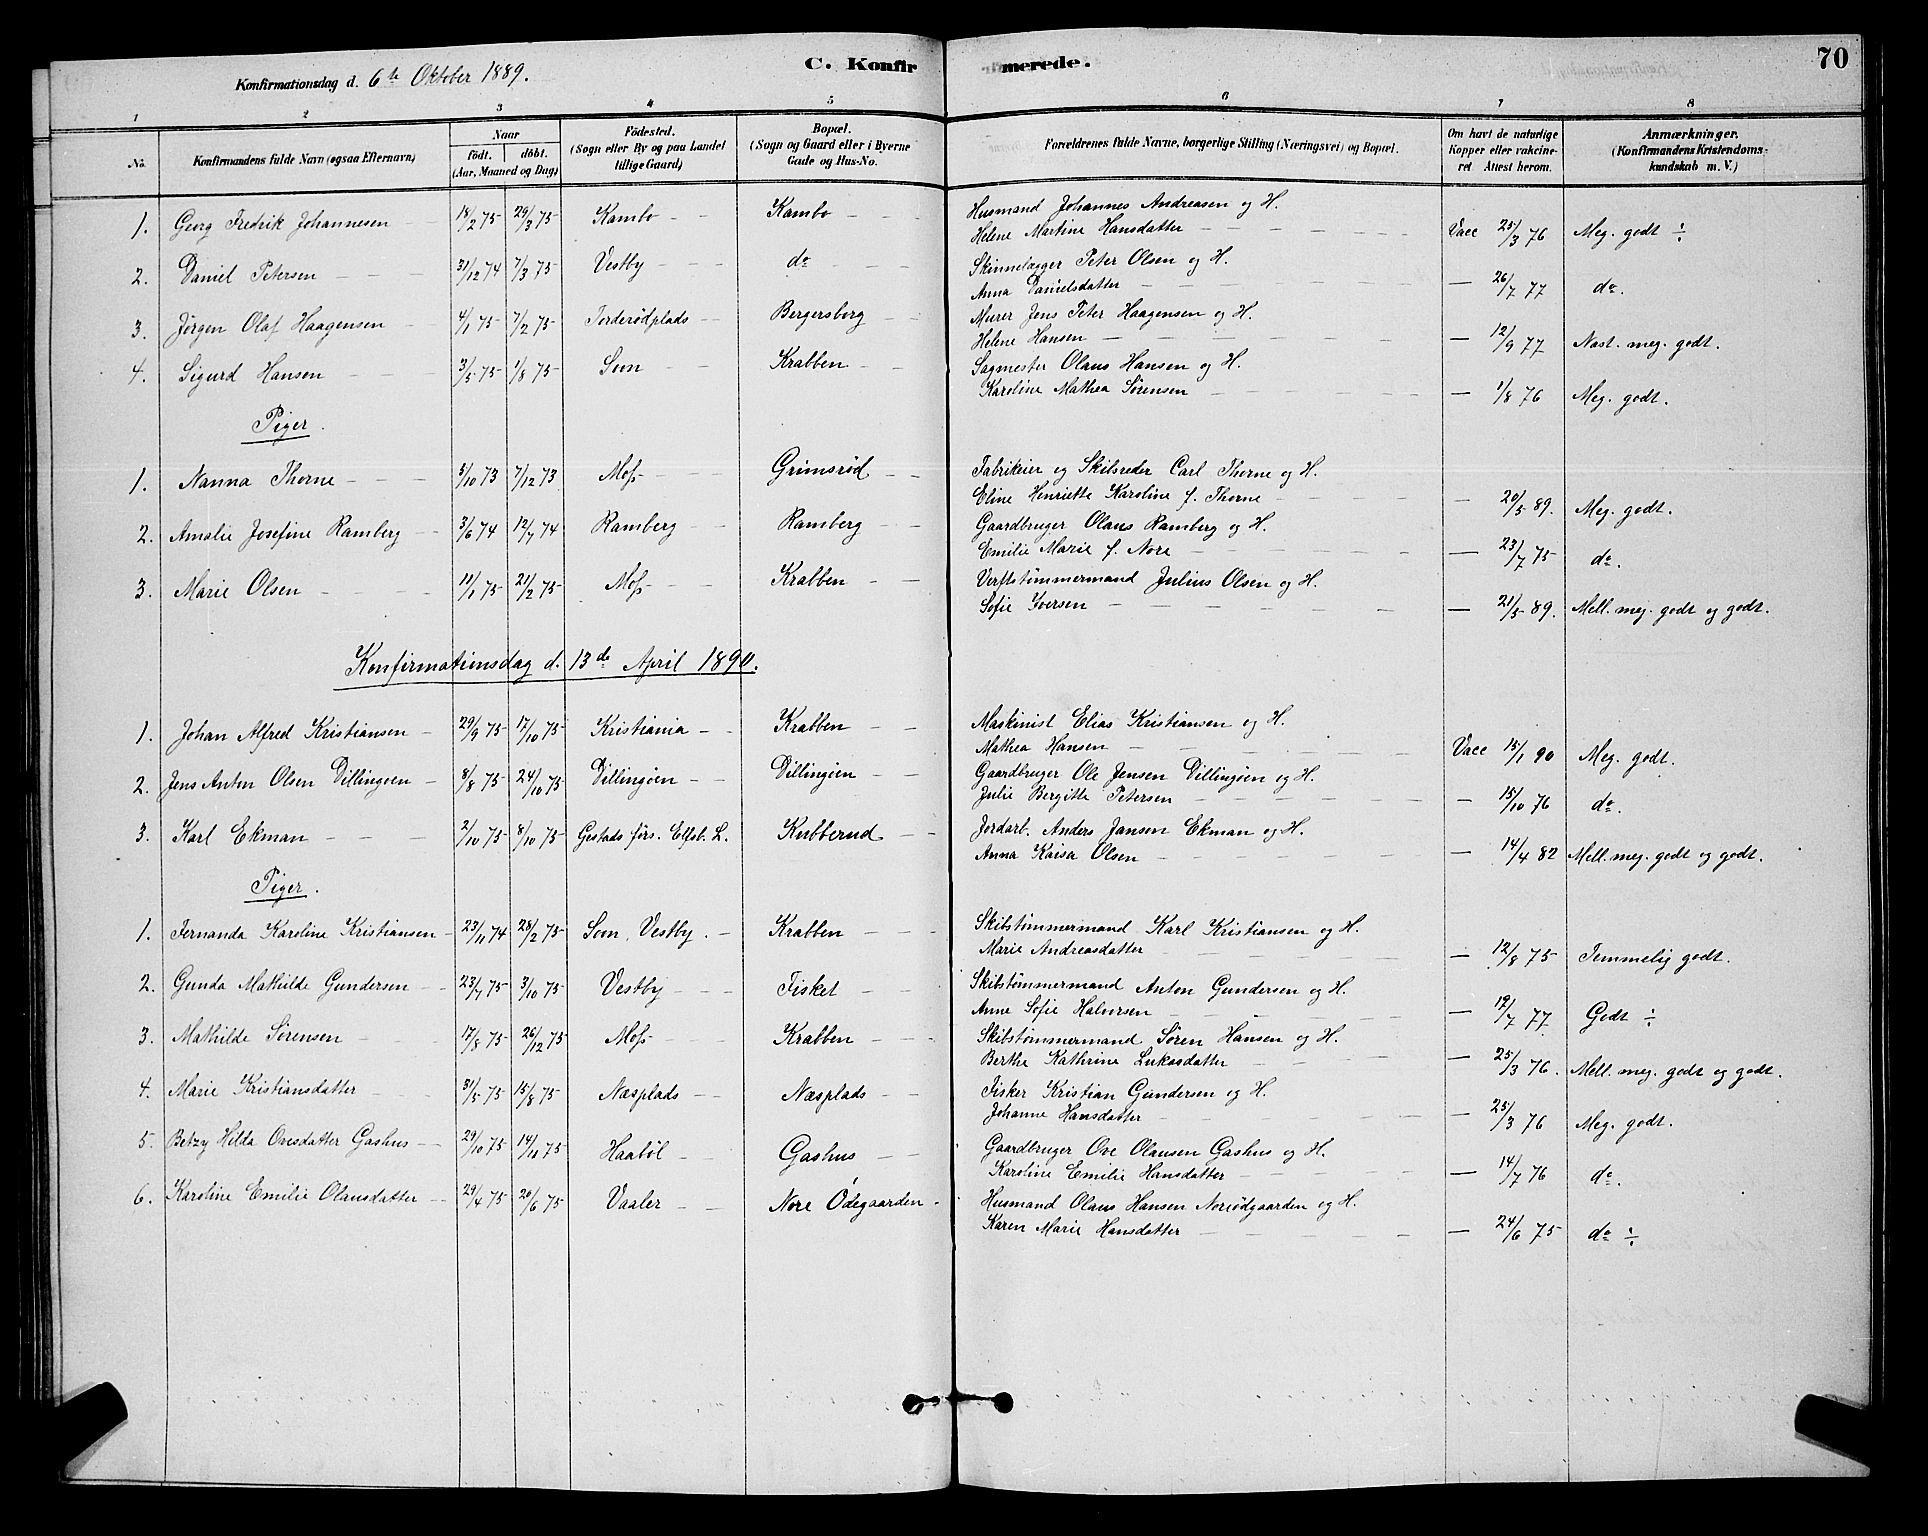 Konfirmationsdag d. 6te Oktober 1889.
C. Konfirmerede.
70
1 2 3 4 5 6 7 8
No. Konfirmandens fulde Navn (ogsaa Efternavn) Naar født. døbt. (Aar, Maaned og Dag) Födested. (Sogn eller By og paa Landet tillige Gaard) Bopæl. (Sogn og Gaard eller i Byerne Gade og Hus-No. Forældrenes fulde Navne, borgerlige Stilling (Næringsvei) og Bopæl. Om havt de naturlige Kopper eller vakcineret Attest herom. Anmærkninger. (Konfirmandens Kristendomskundskab m. V.)
1. Georg Fredrik Johannesen 18/2 75 29/3 75 Kambo Kambo Husmand Johannes Andreasen og H.
Helene Martine Hansdatter Vacc 25/3 76 Meg. godt ÷
2. Daniel Petersen 31/12 74 7/3 75 Vestby do Skinnelægger Peter Olsen og H.
Anna Danielsdatter — 26/7 77 do.
3. Jørgen Olaf Haagensen 4/1 75 7/2 75 Torderødplads Bergersborg Murer Jens Peter Haagensen og H.
Helene Hansen — 12/9 77 Nast. meg. godt.
4. Sigurd Hansen 3/5 75 1/8 75 Soon Krabben Sagmester Olaus Hansen og H.
Karoline Mathea Sørensen — 1/8 76 Meg. godt.
Piger.
1. Nanna Thorne 5/10 73 7/12 73 Moss Grimsrød Fabrikeier og Skibsreder Carl Thorne og H.
Eline Henriette Karoline f. Thorne — 20/5 89. Meg. godt.
2. Amalie Josefine Ramberg 3/6 74 12/7 74 Ramberg Ramberg Gaardbruger Olaus Ramberg og H.
Emilie Marie f. Nore — 23/7 75 do.
3. Marie Olsen 11/1 75 21/2 75 Moss Krabben Verftstømmermand Julius Olsen og H.
Sofie Iversen — 21/5 89. Mell. meg. godt og godt.
Konfirmationsdag d. 13de April 1890.
1. Johan Alfred Kristiansen 29/9 75 17/10 75 Kristiania Krabben Maskinist Elias Kristiansen og H.
Mathea Hansen Vacc 15/1 90 Meg. godt.
2. Jens Anton Olsen Dillingøen 8/8 75 24/10 75 Dillingøen Dillingøen Gaardbruger Ole Jensen Dillingøen og H.
Julie Bergitte Petersen — 15/10 76 do.
3. Karl Ekman 2/10 75 8/10 75 Gestads førs. Elfsb. L. Kubberud Jordarb. Anders Jansen Ekman og H.
Anna Kaisa Olsen — 14/4 82 Mell. meg. godt og godt.
Piger.
1. Fernanda Karoline Kristiansen 23/11 74 28/2 75 Soon, Vestby. Krabben Skibstømmermand Karl Kristiansen og H.
Marie Andreasdatter — 12/8 75 Temmelig godt.
2. Gunda Mathilde Gundersen 23/7 75 3/10 75 Vestby Fisket Skibstømmermand Anton Gundersen og H.
Anne Sofie Halvorsen — 19/7 77 Godt ÷
3. Mathilde Sørensen 17/8 75 26/12 75 Moss Krabben Skibstømmermand Søren Hansen og H.
Berthe Kathrine Lukasdatter — 25/3 76. Mell. meg. godt og godt.
4. Marie Kristiansdatter 31/5 75 15/8 75 Næsplads Næsplads Fisker Kristian Gundersen og H.
Johanne Hansdatter — 25/3 76 Meg. godt.
5. Betzy Hilda Ovesdatter Gashus 29/10 75 14/11 75 Haabøl Gashus Gaardbruger Ove Olausen Gashus og H.
Karoline Emilie Hansdatter — 14/7 76 do.
6. Karoline Emilie Olausdatter 29/4 75 20/6 75 Vaaler Nore Ödegaarden Husmand Olaus Hansen Norødgaarden og H.
Karen Marie Hansdatter — 24/6 75 do ÷